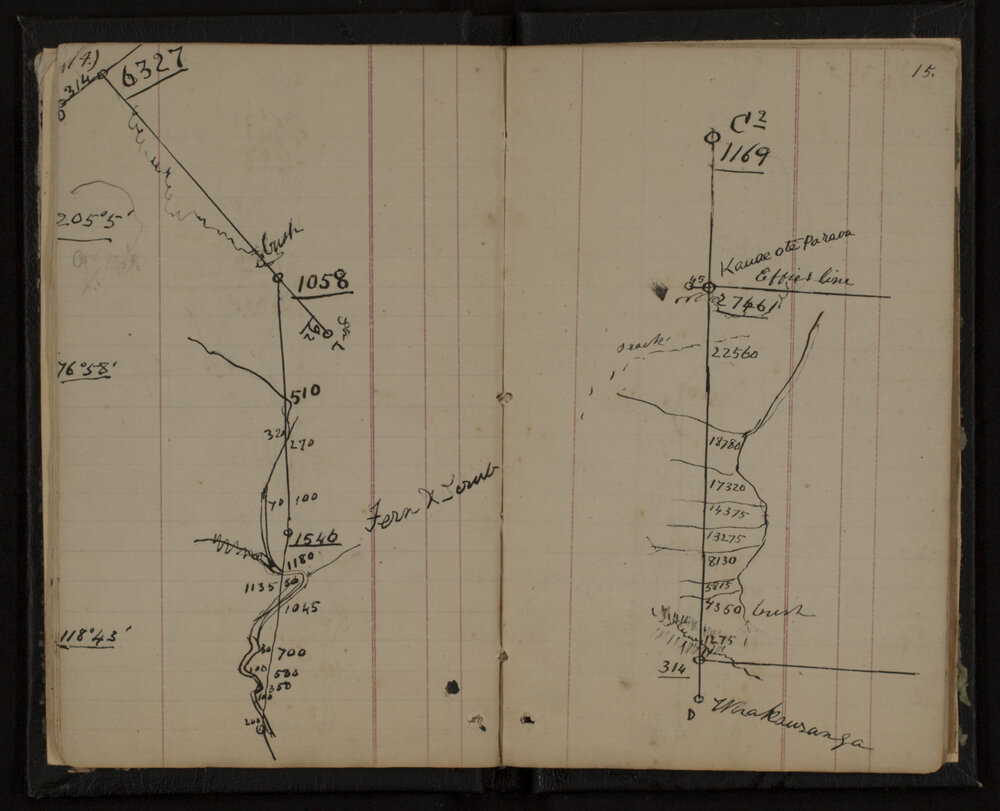 14.)
314
6327
205°5'
bush
1058
76°58'
510
320
270
70
100
Fern & Scrub
1546
1180
1135
50
1045
118°43'
80
700
100
500
350
100
200
15.
C2
1169
Kauae ote Paraoa
Effies line
45
27461
track
22560
18780
17320
14375
13275
8130
5815
4350
bush
1275
314
D